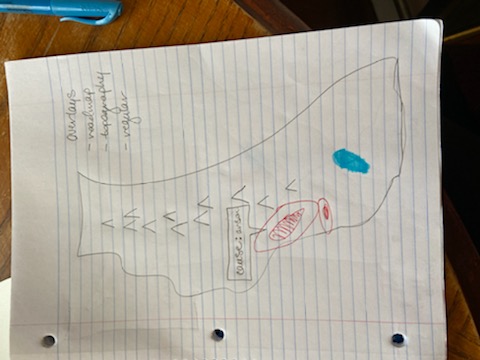 overlays
- roadmap
- topography
- regular
cause: arson